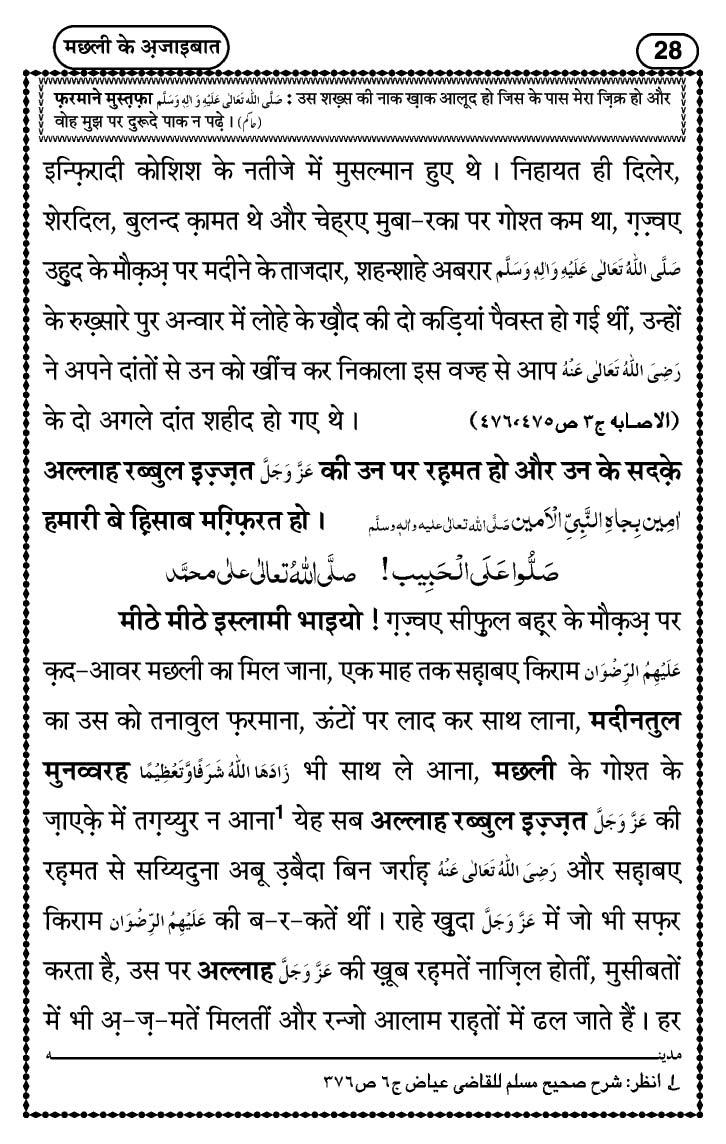 मछली के अ़जाइबात
28
फ़रमाने मुस्त़फ़ा صَلَّى اللّٰهُ تَعَالٰى عَلَيْهِ وَاٰلِهٖ وَسَلَّم : उस शख़्स की नाक ख़ाक आलूद हो जिस के पास मेरा ज़िक्र हो और
वोह मुझ पर दुरूदे पाक न पढ़े। (حاکم)
इन्फ़िरादी कोशिश के नतीजे में मुसल्मान हुए थे । निहायत ही दिलेर,
शेरदिल, बुलन्द क़ामत थे और चेह्रए मुबा-रका पर गोश्त कम था, ग़ज़्वए
उह़ुद के मौक़अ़ पर मदीने के ताजदार, शहन्शाहे अबरार صَلَّى اللّٰهُ تَعَالٰى عَلَيْهِ وَاٰلِهٖ وَسَلَّم
के रुख़्सारे पुर अन्वार में लोहे के ख़ौद की दो कड़ियां पैवस्त हो गई थीं, उन्हों
ने अपने दांतों से उन को खींच कर निकाला इस वज्ह से आप رَضِىَ اللّٰهُ تَعَالٰى عَنْهُ
के दो अगले दांत शहीद हो गए थे । (الاصابه ج٣ ص٤٧٥،٤٧٦)
अल्लाह रब्बुल इ़ज़्ज़त عَزَّ وَجَلَّ की उन पर रह़मत हो और उन के सदक़े
हमारी बे ह़िसाब मग़्फ़िरत हो । اٰمِين بِجَاهِ النَّبِيِّ الْاَمين صَلَّى اللّٰه تعالٰى عليه واٰله وسلَّم
صَلُّوا عَلَى الْحَبِيب! صلَّى اللّٰهُ تَعالٰى على محمَّد
मीठे मीठे इस्लामी भाइयो ! ग़ज़्वए सीफ़ुल बह़्र के मौक़अ़ पर
क़द-आवर मछली का मिल जाना, एक माह तक सह़ाबए किराम عَلَيْهِمُ الرِّضْوَان
का उस को तनावुल फ़रमाना, ऊंटों पर लाद कर साथ लाना, मदीनतुल
मुनव्वरह زَادَهَا اللّٰهُ شَرَفًا وَّتَعْظِيْمًا भी साथ ले आना, मछली के गोश्त के
ज़ाएक़े में तग़य्युर न आना¹ येह सब अल्लाह रब्बुल इ़ज़्ज़त عَزَّ وَجَلَّ की
रह़मत से सय्यिदुना अबू उ़बैदा बिन जर्राह़ رَضِىَ اللّٰهُ تَعَالٰى عَنْهُ और सह़ाबए
किराम عَلَيْهِمُ الرِّضْوَان की ब-र-कतें थीं । राहे ख़ुदा عَزَّ وَجَلَّ में जो भी सफ़र
करता है, उस पर अल्लाह عَزَّ وَجَلَّ की ख़ूब रह़मतें नाज़िल होतीं, मुसीबतों
में भी अ़-ज़-मतें मिलतीं और रन्जो आलाम राह़तों में ढल जाते हैं । हर
مدينه
١ انظر: شرح صحيح مسلم للقاضى عياض ج٦ ص٣٧٦